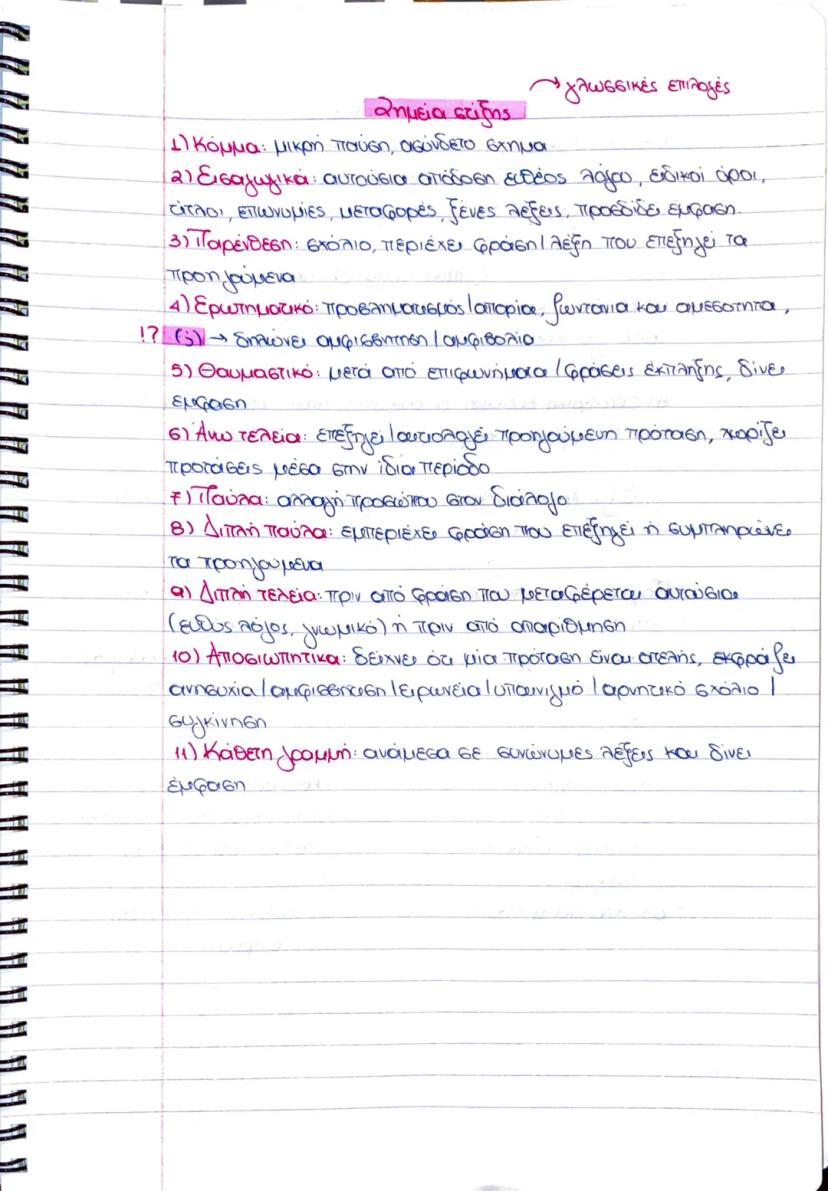 → γλωσσικές επιλογές
Σημεία στίξης
1) Κόμμα: μικρή παύση, ασύνδετο σχήμα
2) Εισαγωγικά: αυτούσια απόδοση ευθέος λόγου, ειδικοί όροι,
τίτλοι, επωνυμίες, μεταφορές, ξένες λέξεις, προσδίδει έμφαση.
3) Παρένθεση: σχόλιο, περιέχει φράση/λέξη που επεξηγεί τα
προηγούμενα
4) Ερωτηματικό: προβληματισμός/απορία, ζωντάνια και αμεσότητα,
!? (;) → δηλώνει αμφισβήτηση/αμφιβολία
5) Θαυμαστικό: μετά από επιφωνήματα/φράσεις έκπληξης, δίνει
έμφαση
6) Άνω τελεία: επεξηγεί/αιτιολογεί προηγούμενη πρόταση, χωρίζει
προτάσεις μέσα στην ίδια περίοδο
7) Παύλα: αλλαγή προσώπου στον διάλογο
8) Διπλή παύλα: εμπεριέχει φράση που επεξηγεί ή συμπληρώνει
τα προηγούμενα
9) Διπλή τελεία: πριν από φράση που μεταφέρεται αυτούσια
(ευθύς λόγος, γνωμικό) ή πριν από απαρίθμηση
10) Αποσιωπητικά: δείχνει ότι μία πρόταση είναι ατελής, εκφράζει
ανησυχία/αμφισβήτηση/ειρωνεία/υπαινιγμό/αρνητικό σχόλιο/
συγκίνηση
11) Κάθετη γραμμή: ανάμεσα σε συνώνυμες λέξεις και δίνει
έμφαση